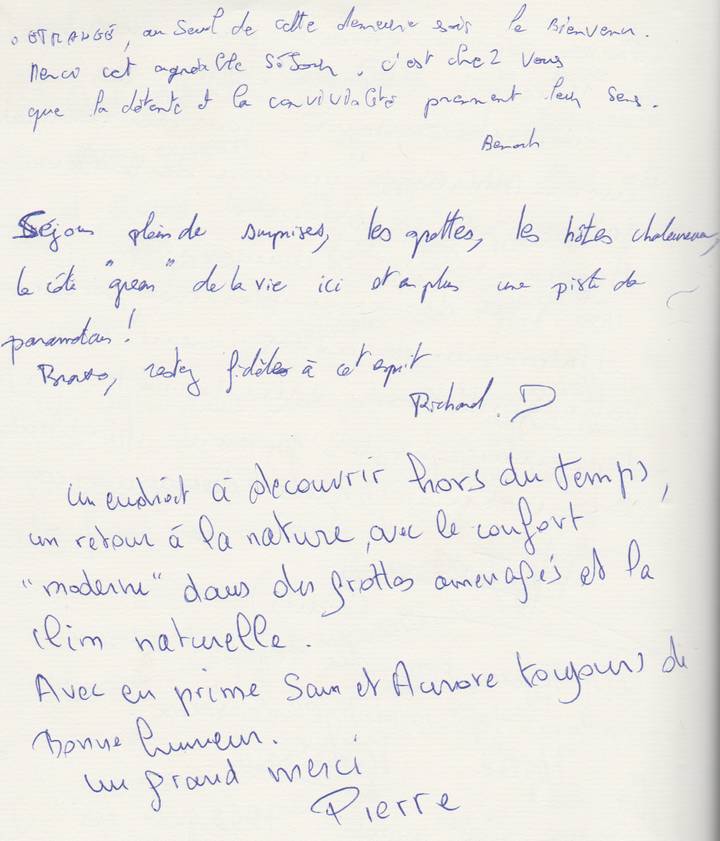 o ETRANGÉ, au Seuil de cette demeure sois le Bienvenu.
Merci cet agréable Séjour, c'est chez vous
que la détente et la convivialité prennent leur sens.
Benoit
Séjour plein de surprises, les grottes, les hôtes chaleureux,
le côté "green" de la vie ici et en plus une piste de
paramoteur!
Bravo, restez fidèles à cet esprit
Richard. D
Un endroit à découvrir hors du temps,
un retour à la nature, avec le confort
"moderne" dans des grottes amenagés et la
clim naturelle.
Avec en prime Sam et Aurore toujours de
Bonne humeur.
un grand merci
Pierre